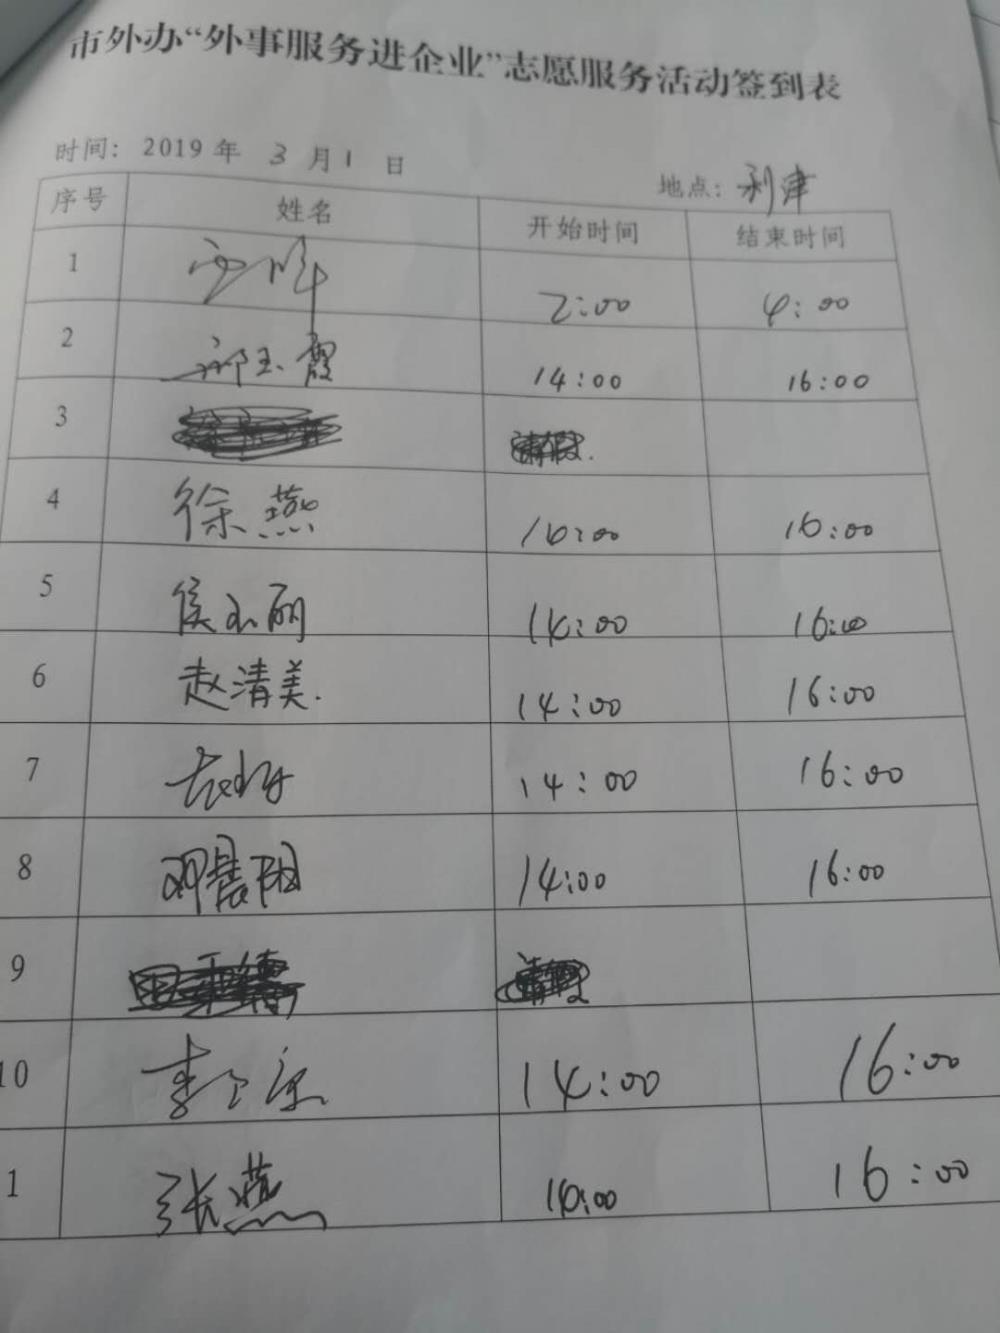 市外办“外事服务进企业”志愿服务活动签到表
时间：2019年 3 月 1 日
地点：利津
序号 姓名 开始时间 结束时间
1 2:00 4:00
2 邱玉霞 14:00 16:00
3 请假.
4 徐燕 14:00 16:00
5 侯玉丽 14:00 16:00
6 赵清美. 14:00 16:00
7 14:00 16:00
8 邓晨阳 14:00 16:00
9 请假
10 李 14:00 16:00
1 张燕 14:00 16:00